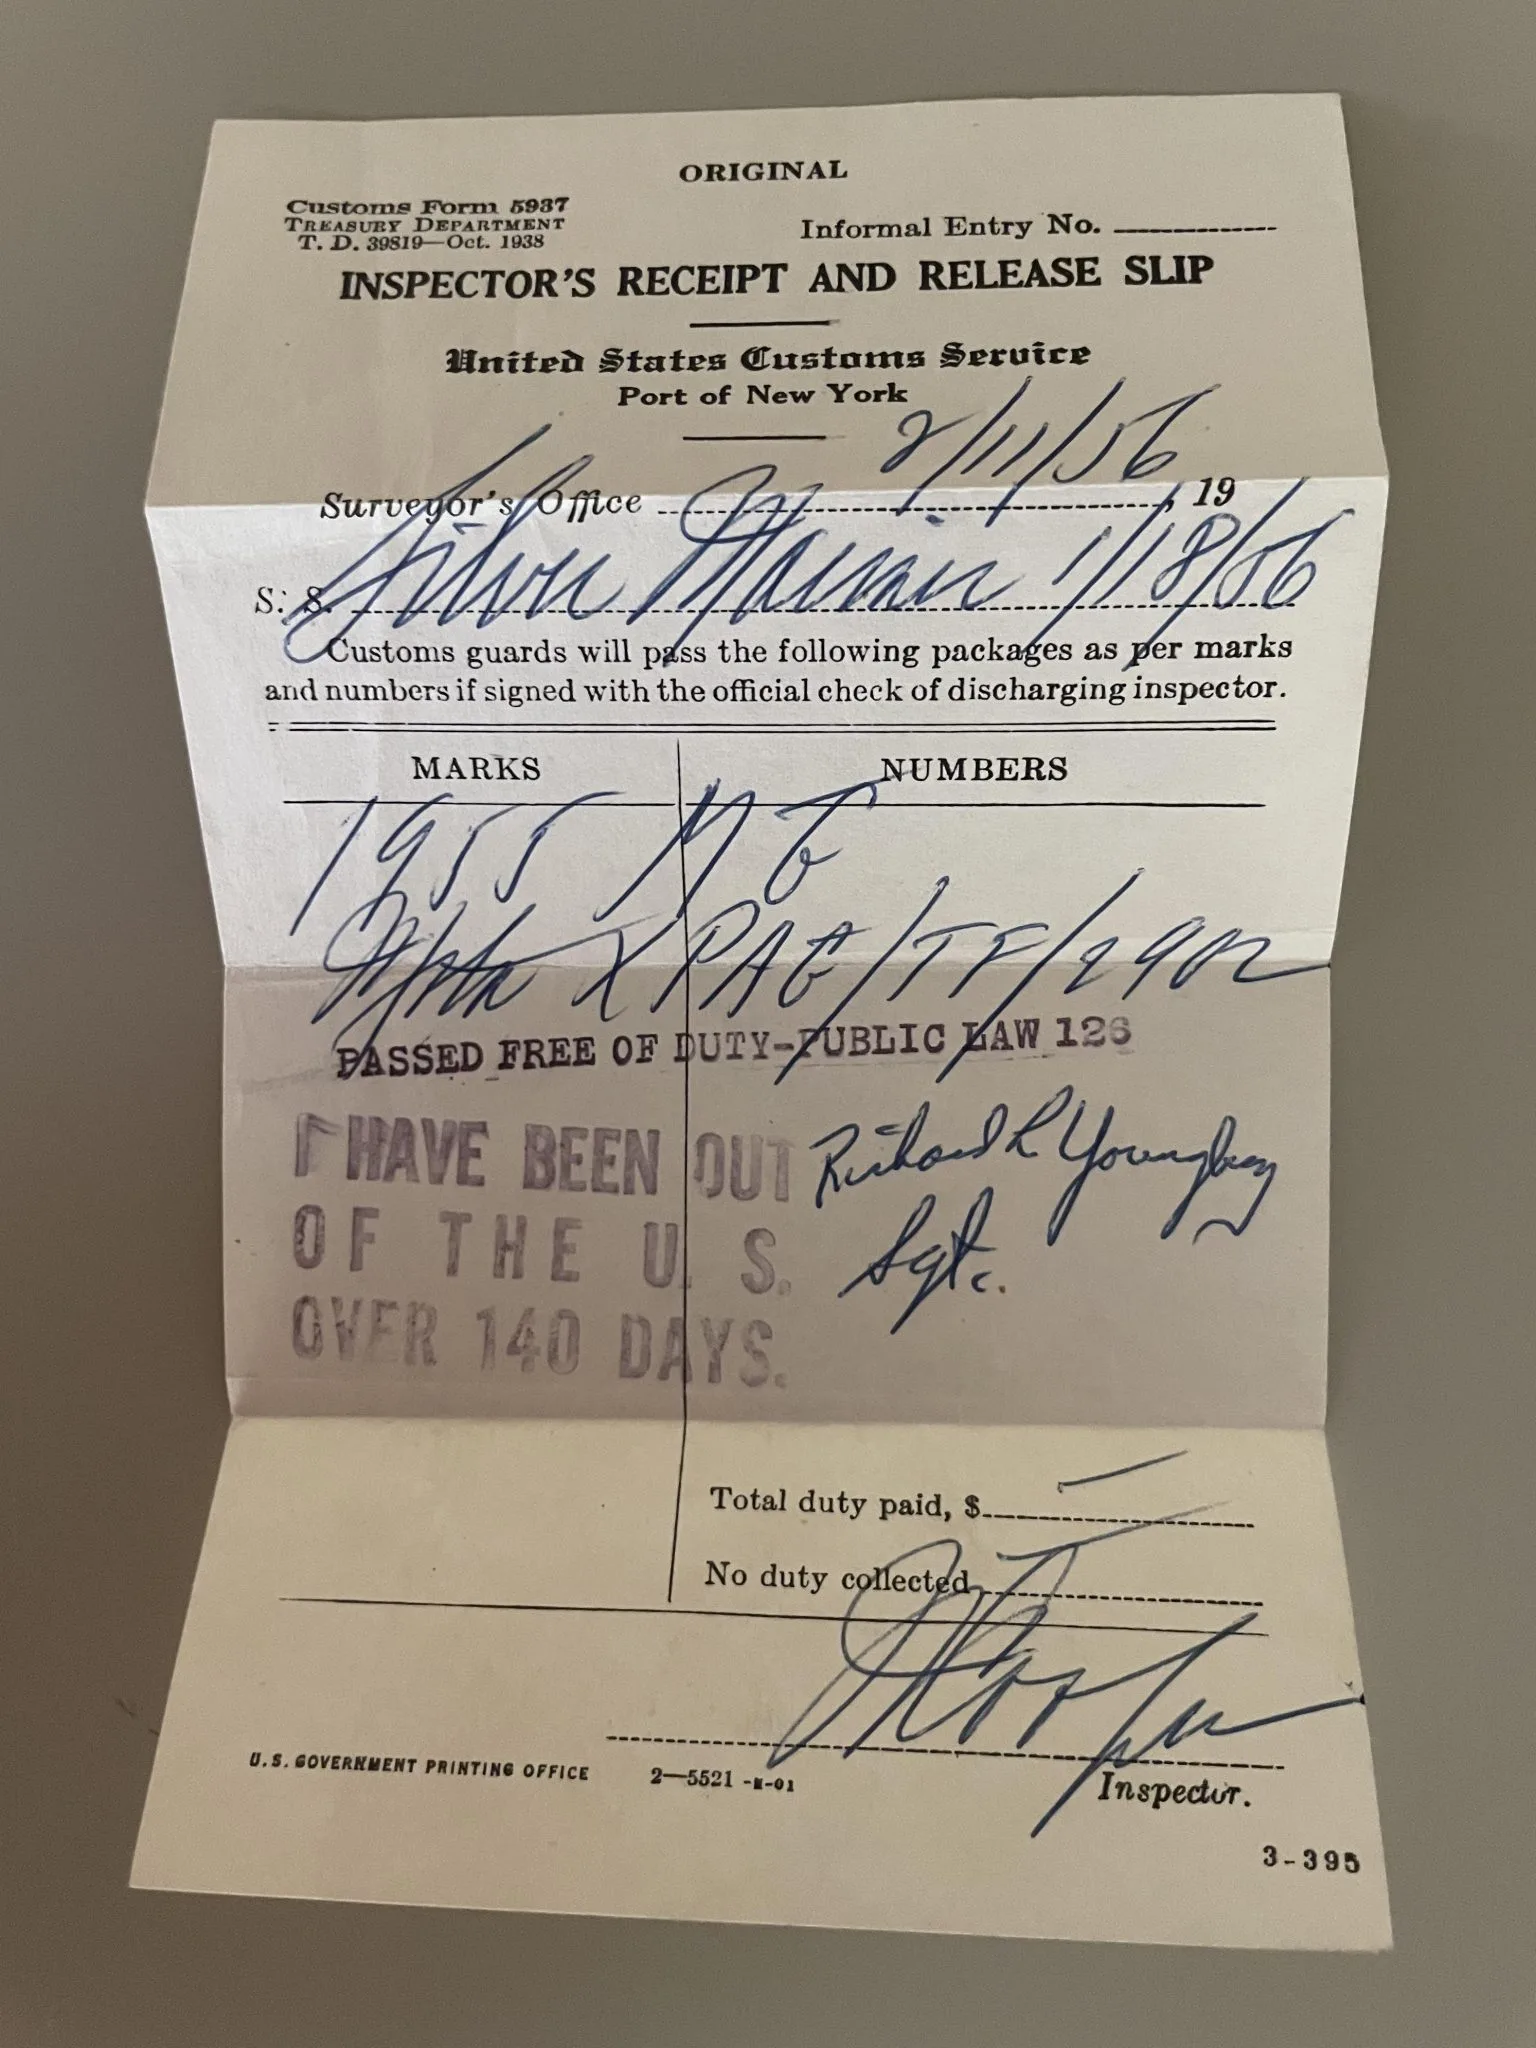 ORIGINAL
Customs Form 5937
TREASURY DEPARTMENT
T. D. 39819—Oct. 1938
Informal Entry No.
INSPECTOR'S RECEIPT AND RELEASE SLIP
United States Customs Service
Port of New York
2/11/56
Surveyor's Office , 19
S. S. Silver Mariner 1/18/56
Customs guards will pass the following packages as per marks
and numbers if signed with the official check of discharging inspector.
MARKS NUMBERS
1955 M G
PAG/TF/2902
PASSED FREE OF DUTY-PUBLIC LAW 126
I HAVE BEEN OUT
OF THE U. S.
OVER 140 DAYS.
Richard L Youngberg
Sgt.
Total duty paid, $ —
No duty collected
Inspector.
U.S. GOVERNMENT PRINTING OFFICE 2—5521 -M-01
3-395